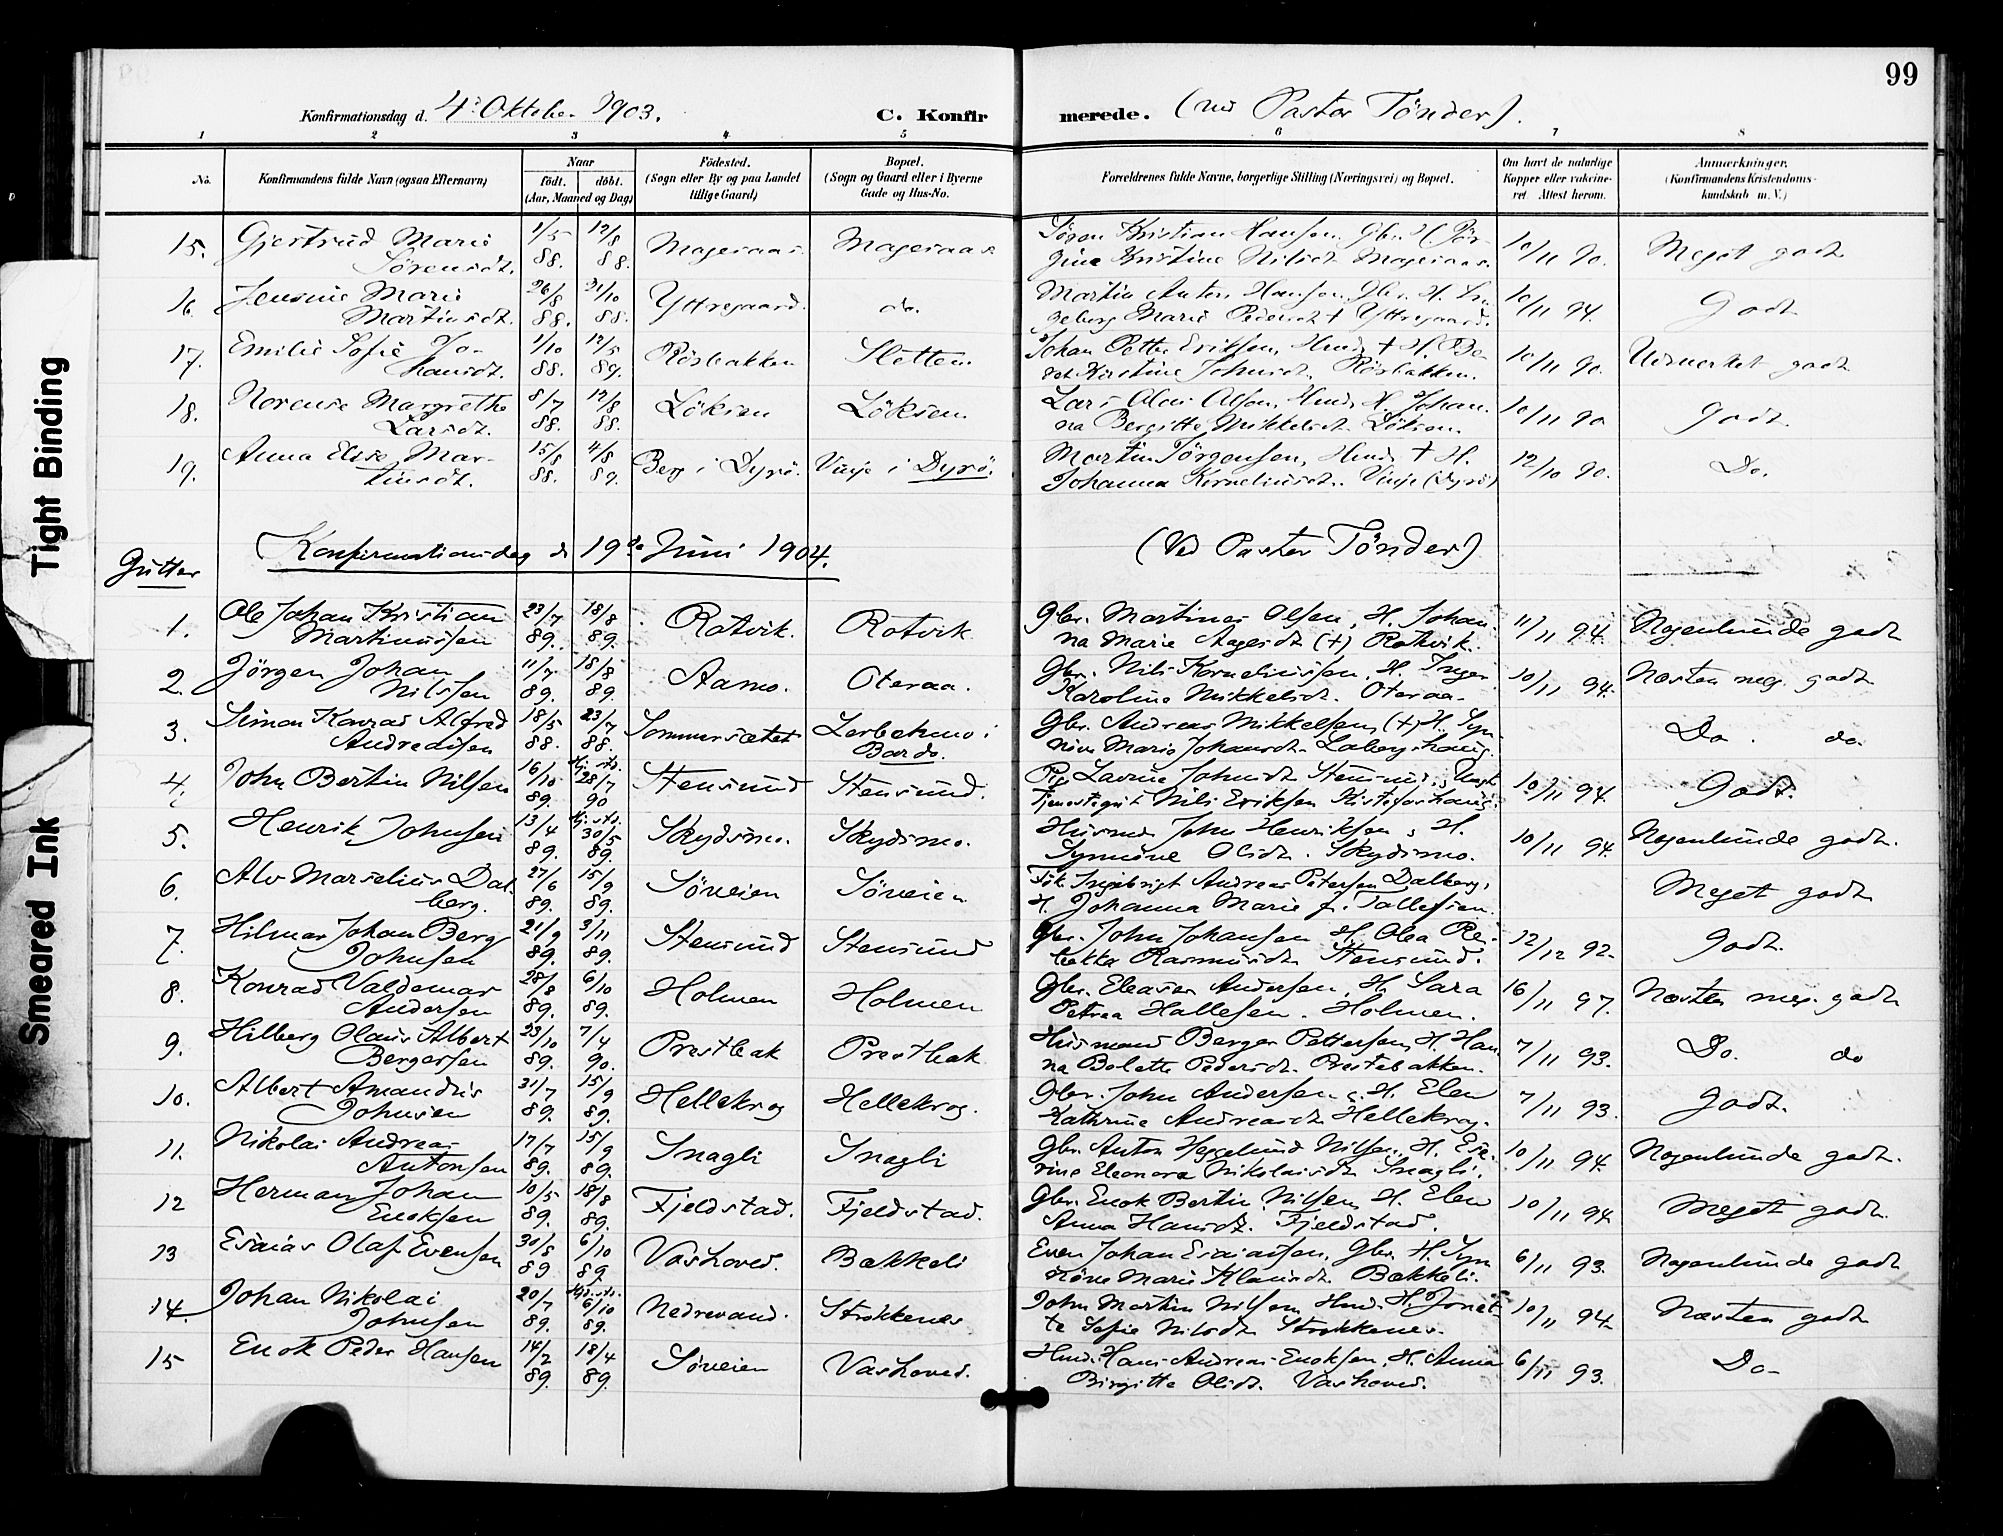 99
Konfirmationsdag d. 4de Oktober 1903. C. Konfirmerede. (ved Pastor Tönder).
1 2 3 4 5 6 7 8
No. Konfirmandens fulde Navn (ogsaa Efternavn) Naar födt. döbt. (Aar, Maaned og Dag) Födested. (Sogn eller By og paa Landet tillige Gaard) Bopæl. (Sogn og Gaard eller i Byerne Gade og Hus-No. Forældrenes fulde Navne, borgerlige Stilling (Næringsvei) og Bopæl. Om havt de naturlige Kopper eller vakcineret. Attest herom. Anmærkninger. (Konfirmandens Kristendomskundskab m. V.)
15. Gjertrud Marie 1/5 12/8 Mageraas. Mageraas Sören Kristian Hansen, Gbr. H. Jör- 10/11 90. Meget godt
Sörensdt. 88. 88. gine Kristine Nilsdt. Mageraas.
16. Jensine Marie 26/8 21/10 Yttregaard. do. Martin Anton Hansen, Gbr. H. In- 10/11 94. Godt
Martinsdt. 88. 88. geborg Marie Pedersdt + Yttregaard.
17. Emilie Sofie Jo- 1/10 12/5 Rösbakken Sletten. Johan Petter Eriksen, Husmd + H. Be- 10/11 90. Udmerket godt
hansdt. 88. 89. ret Kirstine Johnsdt. Rösbakken.
18. Norense Margrethe 8/7 12/8 Löksen Löksen. Lars Olai Olsen, Husmd. H. Johan- 10/11 90 Godt.
Larsdt. 88. 88. na Bergitte Mikkelsdt. Löksen.
19. Anna Elise Mar- 15/8 4/8 Berg i Dyrö. Vinje i Dyrö. Martin Jörgensen, Husmd + H. 12/10 90. Do.
tinsdt. 88. 89. Johanna Korneliusdt. Vinje (Dyrö)
Konfirmationsdag d 19de Juni 1904. (Ved Pastor Tönder)
Gutter
1. Ole Johan Kristian 23/7 18/8 Rotvik. Rotvik Gbr. Martinus Olsen, H. Johan- 11/11 94. Nogenlunde godt
Martinussen 89. 89. na Marie Aagesdt (+) Rotvik.
2. Jörgen Johan 11/7 18/8 Aamo. Oteraa. Gbr. Nils Korneliussen, H. Inger 10/11 94. Næsten meg. godt
Nilssen 89. 89. Karoline Mikkelsdt. Oteraa.
3. Simon Konrad Alfred 18/5 23/7 Sommersætet Lerbekmo i Gbr. Andreas Mikkelsen, (+) H. Syn- Do. do.
Andreassen 88. 88. Bardo. növe Marie Johansdt. Labergshaug.
4. John Bertin Nilsen 16/10 Hj. db. 28/7 Stensund Stensund. Pig. Lavine Johnsdt Stensund, Ungk. 10/11 94. Godt.
89. 90 Nils Eriksen Kistefoshaug.
5. Henrik Johnsen 13/4 Hj. db. 30/5 Skydsmo. Skydsmo. Husmd John Henriksen, H. 10/11 94. Nogenlunde godt.
89. 89. Synnöve Olsdt. Skydsmo.
6. Alv Marselius Dal- 27/6 15/9 Sörveien Sörveien Ingebrigt Andreas Petersen Dalberg, Meget godt
berg. 89. 89. H. Johanna Marie f. Tollefsen.
7. Hilmar Johan Berg 21/9 3/11 Stensund Stensund Gbr. John Johansen H. Olea Re- 12/12 92. Godt.
Johnsen 89. 89. bekka Rasmusdt Stensund.
8. Konrad Valdemar 28/8 6/10 Holmen Holmen Gbr. Eleaser Andersen, H. Sara 16/11 97. Næsten meg. godt
Andersen 89. 89. Petraa Hallesen. Holmen.
9. Hilberg Olaus Albert 23/10 7/4 Prestbak Prestbak Husmand Berger Pettersen, H. Han- 7/11 93. Do. do
Bergersen 89. 90. na Bolette Pedersdt. Prestebakken.
10. Albert Amandus 31/7 15/9 Hellekrog Hellekrog. Gbr. John Andersen, H. Elen 7/11 93. Godt.
Johnsen 89. 89. Kathrine Andreasdt Hellekrog.
11. Nikolai Andreas 17/7 15/9 Snagli Snagli Gbr. Anton Heggelund Nilsen, H. Ese- 10/11 94. Nogenlunde godt.
Antonsen 89. 89. rine Eleonora Nikolaisdt Snagli.
12 Herman Johan 10/5 18/8 Fjeldstad. Fjeldstad. Gbr. Enok Bertin Nilsen, H. Elen 10/11 94 Meget godt
Enoksen 89. 89. Anna Hansdt. Fjeldstad.
13 Esaias Olaf Evensen 30/8 6/10 Vashoved. Bækkeli Even Johan Esaiassen, Gbr. H. Syn- 6/11 93. Nogenlunde godt
89 89 növe Marie Klausdt Bækkeli.
14. Johan Nikolai 20/7 Hj. db. 6/10 Nedrevand. Strokkenes John Martin Nilsen, Husmd. H. Jonet- 10/11 94. Næsten godt
Johnsen 89. 89. te Sofie Nilsdt Strokkenes.
15 Enok Peder Hansen 14/2 18/4 Sörveien Vashoved. Husmd. Hans Andreas Enoksen, H. Anna 6/11 93. Do
89. 89. Birgitte Olsdt. Vashoved.
Tight Binding
Smeared Ink